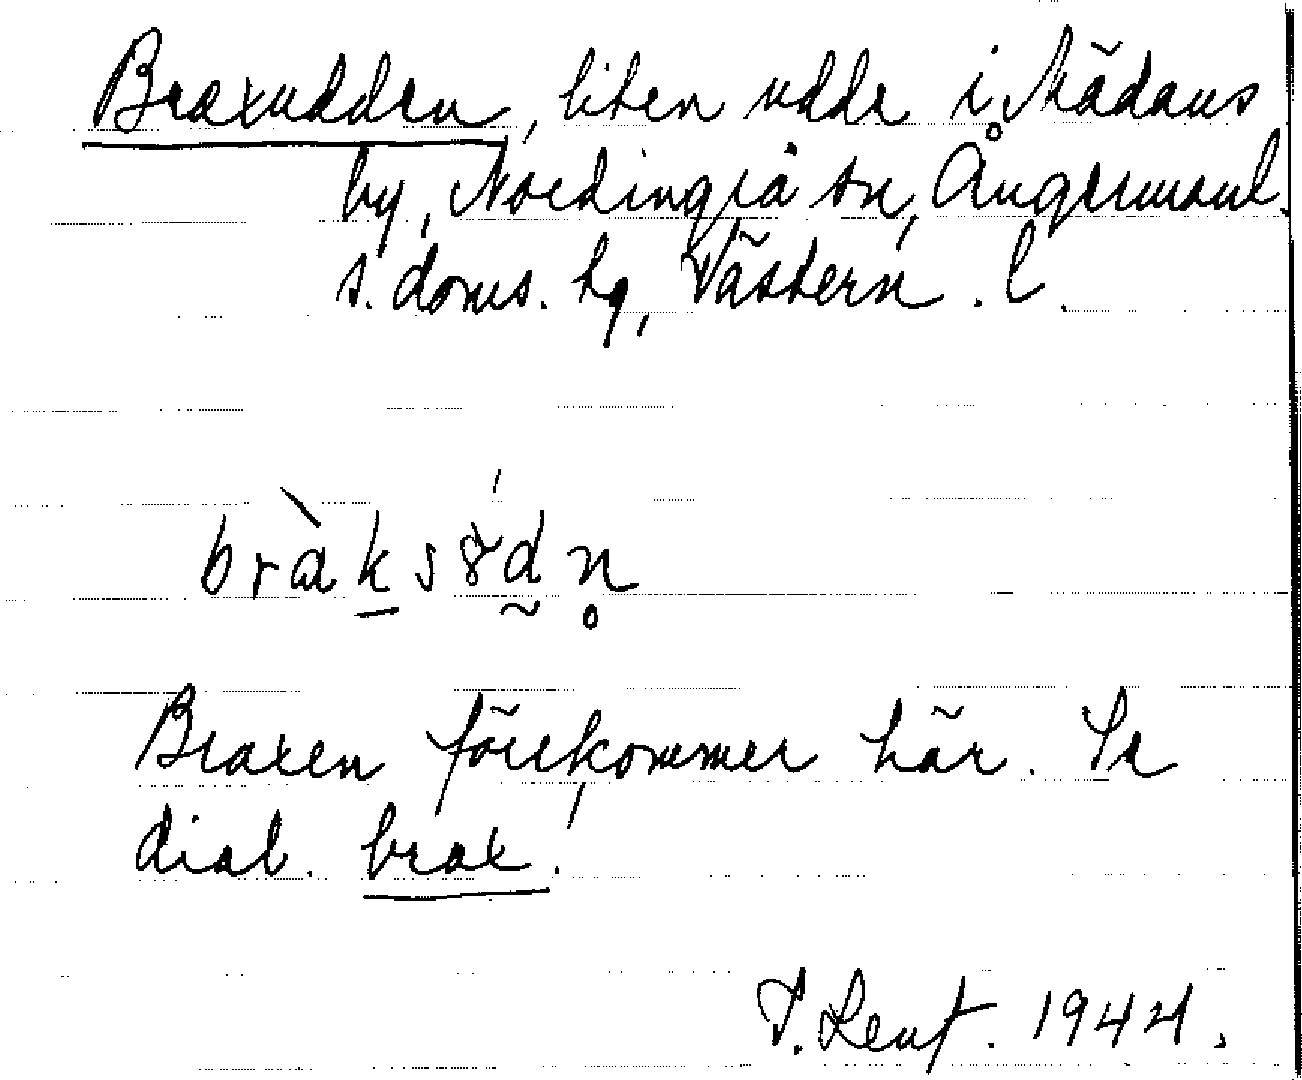 Braxudden, liten udde i Mädans
by, Nordingrå sn, Ångermanl.
s. doms. hg, Västern. l.
bràksɤ́dn̥
Braxen förekommer här. Se
dial. brax.
T. Lenf. 1944.